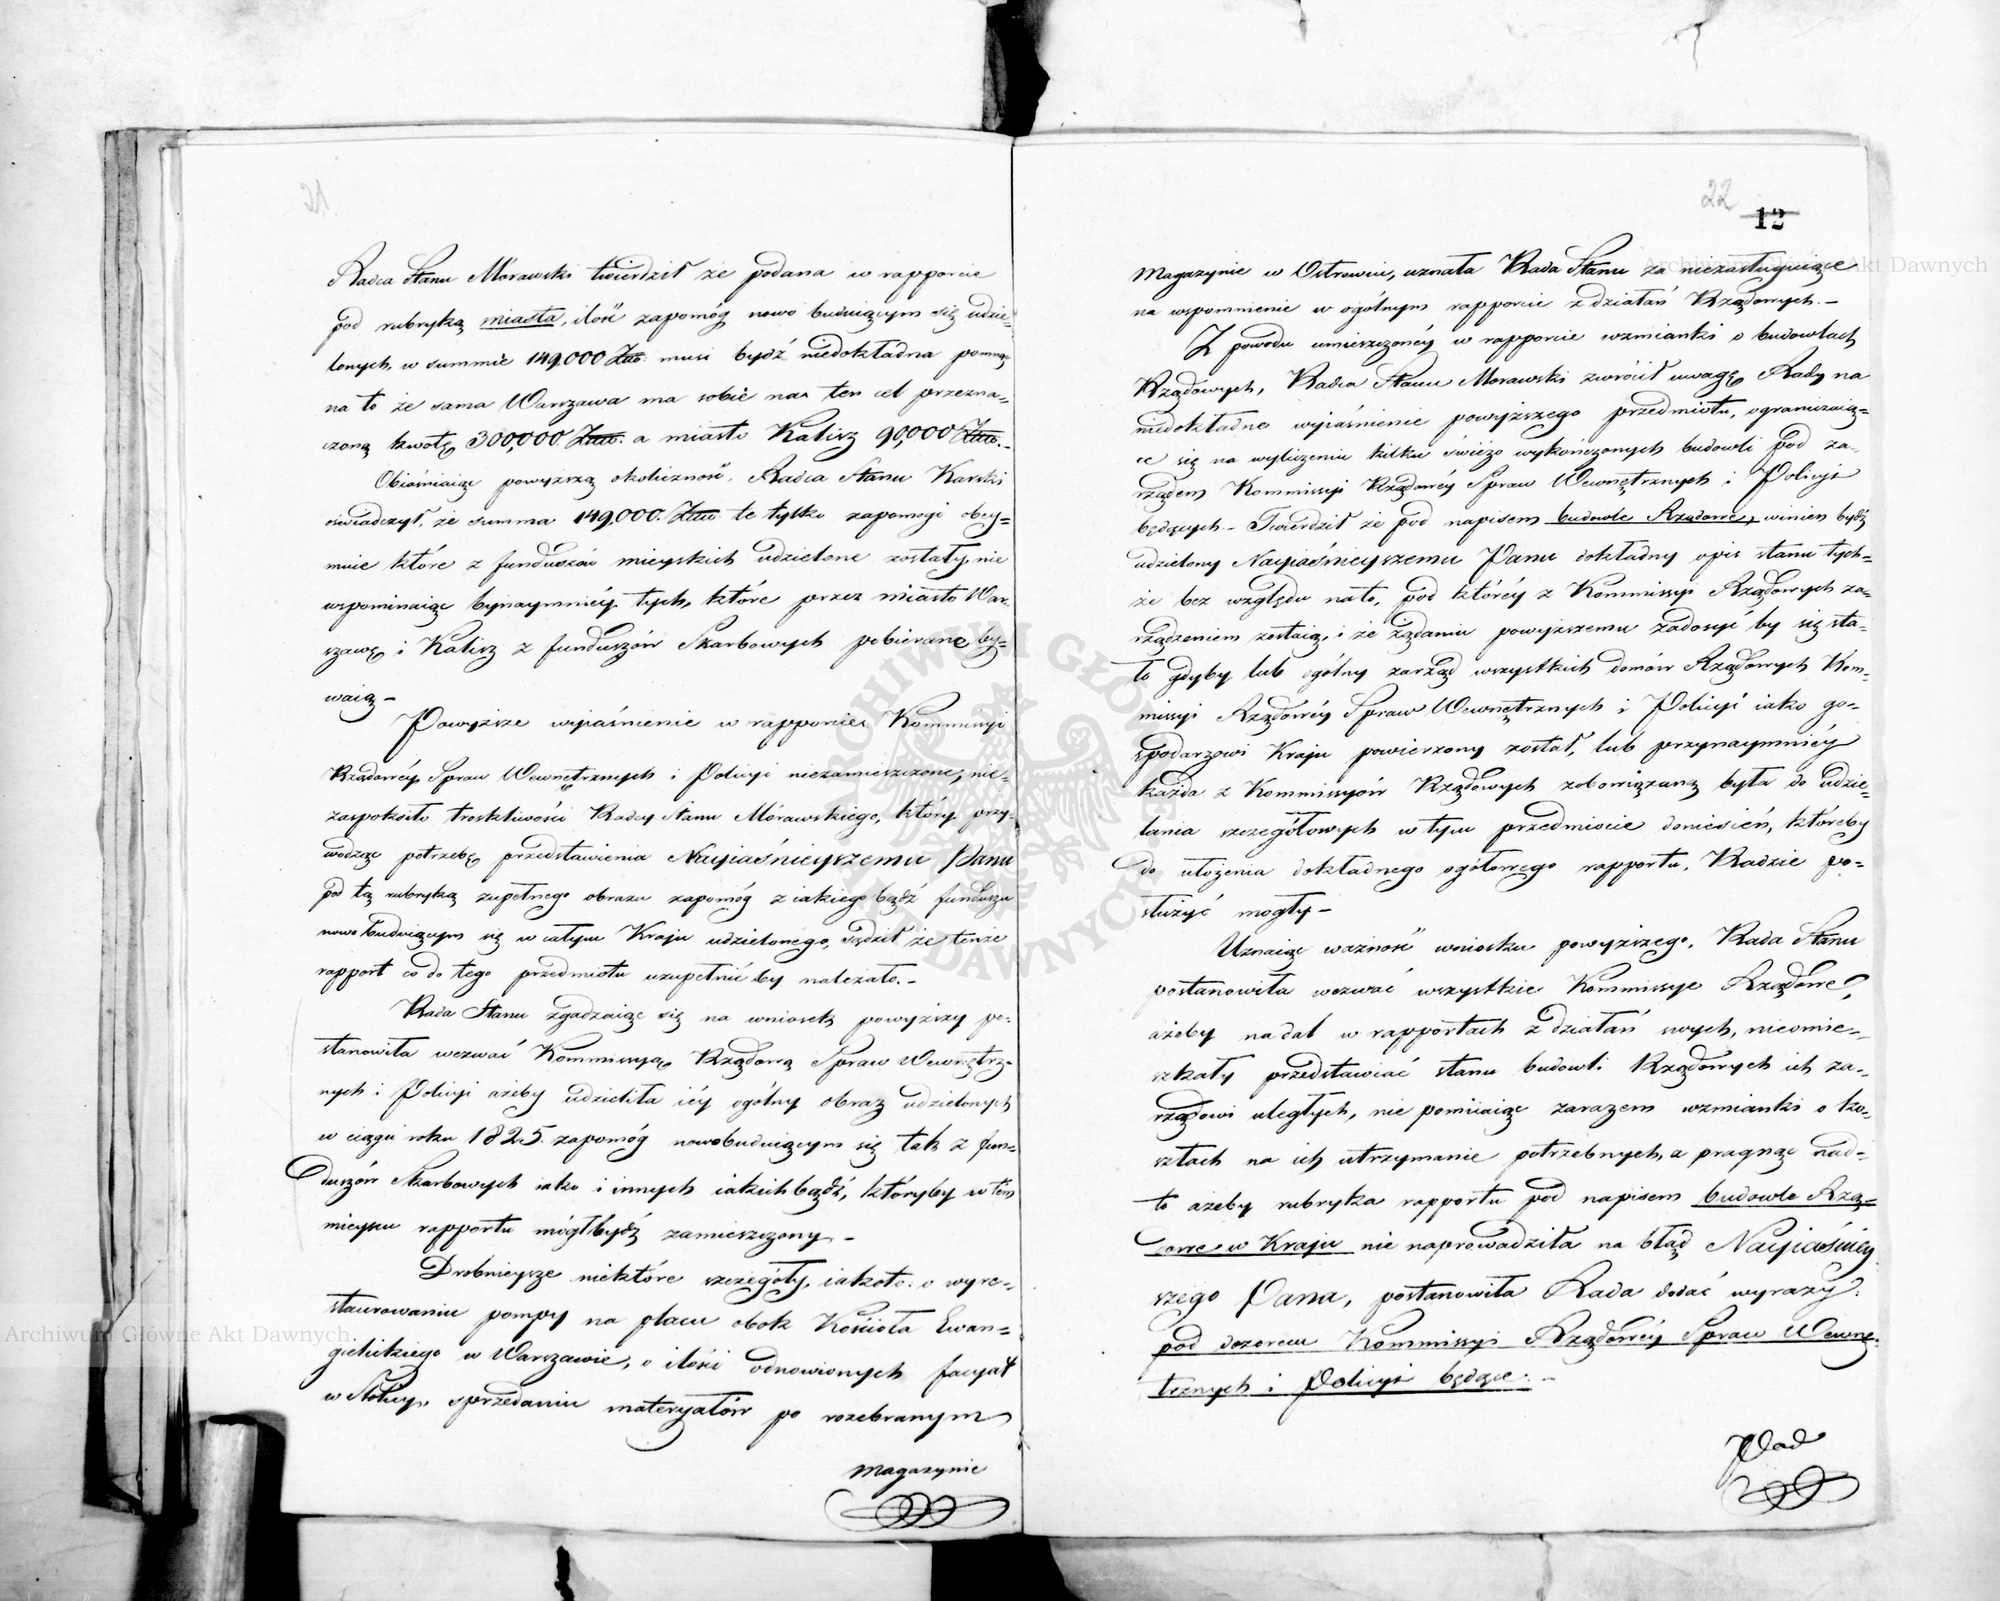 21.
Radca Stanu Morawski twierdził że podana w rapporcie
pod rubryką miasta, ilość zapomóg nowo buduiącym się udzie=
lonych, w summie 149,000 Złło. musi bydź niedokładna pomnąc
na to że sama Warszawa ma sobie na ten cel przezna=
czoną kwotę 300,000 Złło. a miasto Kalisz 90,000 Złło.–
Obiaśniaiąc powyższą okoliczność, Radca Stanu Karski
oświadczył, że summa 149,000. Złło te tylko zapomogi obey=
muie które z funduszów mieyskich udzielone zostały, nie
wspominaiąc bynaymniéy tych, które przez miasto War=
szawę i Kalisz z funduszów Skarbowych pobierane by=
waią –
Powyższe wyiaśnienie w rapporcie Kommissyi
Rządowéy Spraw Wewnętrznych i Policyi niezamieszczone, nie=
zaspokoiło troskliwości Radcy Stanu Morawskiego, który przy=
wodząc potrzebę przedstawienia Nayiaśnieyszemu Panu
pod tą rubryką zupełnego obrazu zapomóg z iakiego bądź funduszu
nowobuduiącym się w całym Kraju udzielonego, sądził że tenże
rapport co do tego przedmiotu uzupełnić by należało. –
Rada Stanu zgadzaiąc się na wniosek powyższy po=
stanowiła wezwać Kommissyą Rządową Spraw Wewnętrz=
nych i Policyi ażeby udzieliła iéy ogólny obraz udzielonych
w ciągu roku 1825. zapomóg nowobuduiącym się tak z fun=
duszów Skarbowych iako i innych iakichbądź, któryby w tém
mieyscu rapportu mógłbydź zamieszczony –
Drobnieysze niektóre szczegóły, iakoto: o wyre=
staurowaniu pompy na placu obok Kościoła Ewan=
gielickiego w Warszawie, o ilości odnowionych facyat
w Stolicy, sprzedaniu materyałów po rozebranym
Magazynie
22
12
Magazynie w Ostrowiu, uznała Rada Stanu za niezasługuiące
na wspomnienie w ogólnym rapporcie z działań Rządowych. –
Z powodu umieszczonéy w rapporcie wzmianki o budowlach
Rządowych, Radca Stanu Morawski zwrócił uwagę Rady na
niedokładne wyiaśnienie powyższego przedmiotu, ograniczaią=
ce się na wyliczeniu kilku świéżo wykończonych budowli pod za=
rządem Kommissyi Rządowéy Spraw Wewnętrznych i Policyi
będących – Twierdził że pod napisem budowle Rządowe, winien bydź
udzielony Nayiaśnieyszemu Panu dokładny opis stanu tych=
że bez względu na to, pod któréy z Kommissyi Rządowych za=
rządzeniem zostaią, i że żądaniu powyższemu zadosyć by się sta=
ło gdyby lub ogólny zarząd wszystkich domów Rządowych Kom=
missyi Rządowéy Spraw Wewnętrznych i Policyi iako go=
spodarzowi Kraju powierzony został, lub przynaymniéy
każda z Kommissyów Rządowych zobowiązaną była do udzie=
lania szczegółowych w tym przedmiocie doniesień, któreby
do ułożenia dokładnego ogółowego rapportu, Radzie po=
służyć mogły –
Uznaiąc ważność wniosku powyższego, Rada Stanu
postanowiła wezwać wszystkie Kommissye Rządowe,
ażeby nadal w rapportach z działań swych, nieomie=
szkały przedstawiać stanu budowli Rządowych ich za=
rządowi uległych, nie pomiiaiąc zarazem wzmianki o ko=
sztach na ich utrzymanie potrzebnych, a pragnąc nad=
to ażeby rubryka rapportu pod napisem budowle Rzą=
dowe w Kraju nie naprowadziła na błąd Nayiaśniey
szego Pana, postanowiła Rada dodać wyrazy:
pod dozorem Kommissyi Rządowéy Spraw Wewnę=
trznych i Policyi będące. –
Pod
Archiwum Główne Akt Dawnych
Archiwum Główne Akt Dawnych
ARCHIWUM GŁÓWNE AKT DAWNYCH